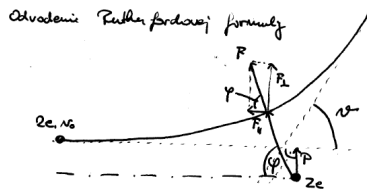 Odvodenie Rutherfordovej formuly
F
F⊥
φ
F∥
2e, v₀
ϑ
φ
p
Ze